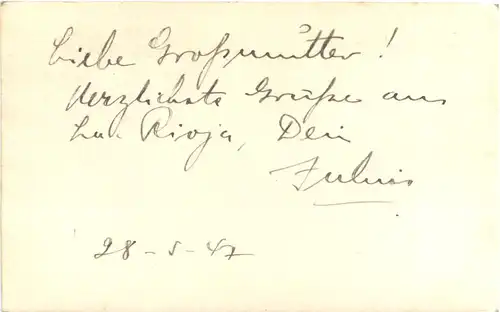 Liebe Großmutter!
Herzlichste Grüße aus
La. Rioja, Dein
Julius
28-5-47